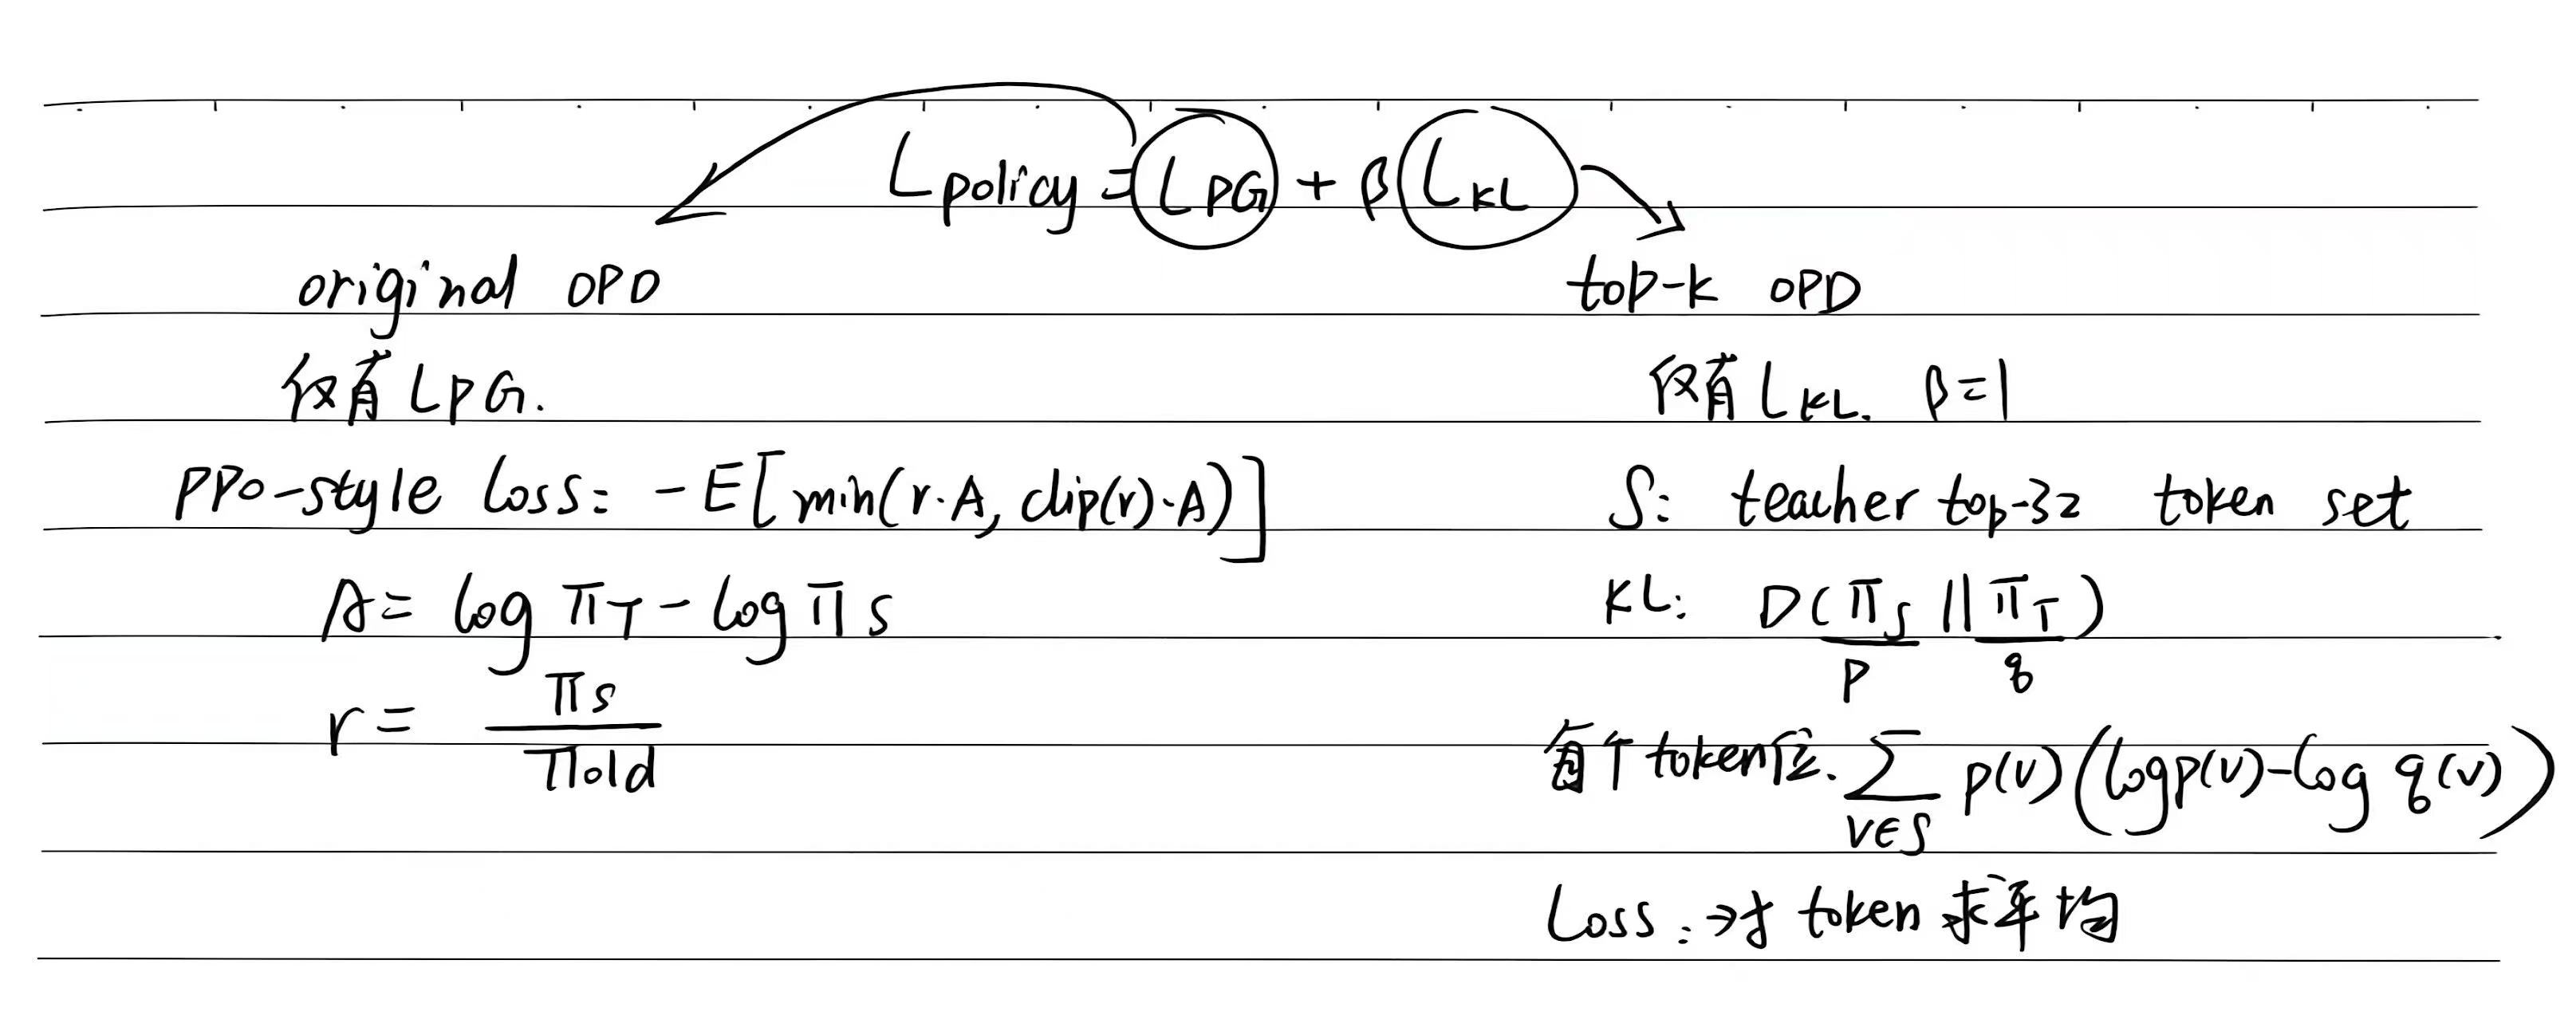 L_policy = L_PG + β L_KL
original OPD
仅有 L_PG.
PPO-style Loss: -E[min(r·A, clip(r)·A)]
A = log π_T - log π_S
r = π_S / π_old
top-k OPD
仅有 L_KL. β=1
S: teacher top-32 token set
KL: D(π_S || π_T)
p q
每个token位. ∑_{v∈S} p(v)(log p(v) - log q(v))
Loss: 对 token 求平均